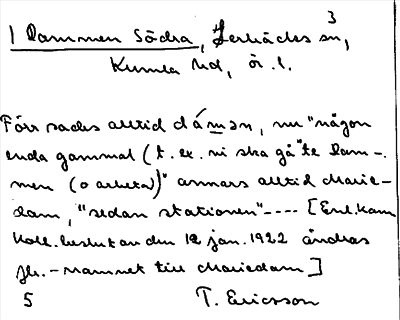 3
1 Dammen Södra, Lerbäcks sn,
Kumla hd, Ör. l.
Förr sades alltid dámən, nu "någon
enda gammal (t. ex. ni ska gå "te Dam-
men (o arbeta)" annars alltid Marie-
dam, "sedan stationen" ---- [Enl. Kam
koll. beslut av den 12 jan. 1922 ändras
fb.-namnet till Mariedam]
5 T. Ericsson